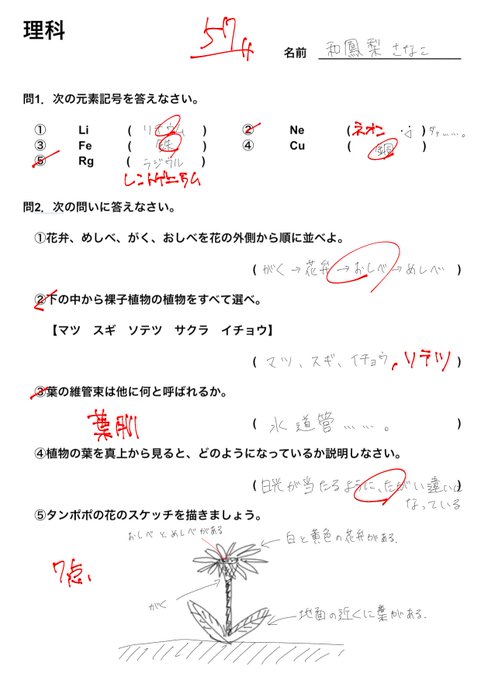 理科
57点
名前 和鳳梨 さなこ
問1．次の元素記号を答えなさい。
① Li ( リチウム )
② Ne ( ネオン )
③ Fe ( 鉄 )
④ Cu ( 銅 )
⑤ Rg ( ラジウル )
レントゲニウム
問2．次の問いに答えなさい。
①花弁、めしべ、がく、おしべを花の外側から順に並べよ。
( がく→花弁→おしべ→めしべ )
②下の中から裸子植物の植物をすべて選べ。
【マツ　スギ　ソテツ　サクラ　イチョウ】
( マツ、スギ、イチョウ、ソテツ )
③葉の維管束は他に何と呼ばれるか。
葉脈
( 水道管……。 )
④植物の葉を真上から見ると、どのようになっているか説明しなさい。
( 日光が当たるように、たがい違いに
なっている )
⑤タンポポの花のスケッチを描きましょう。
おしべとめしべがある
白と黄色の花弁がある。
7点
がく
地面の近くに葉がある。